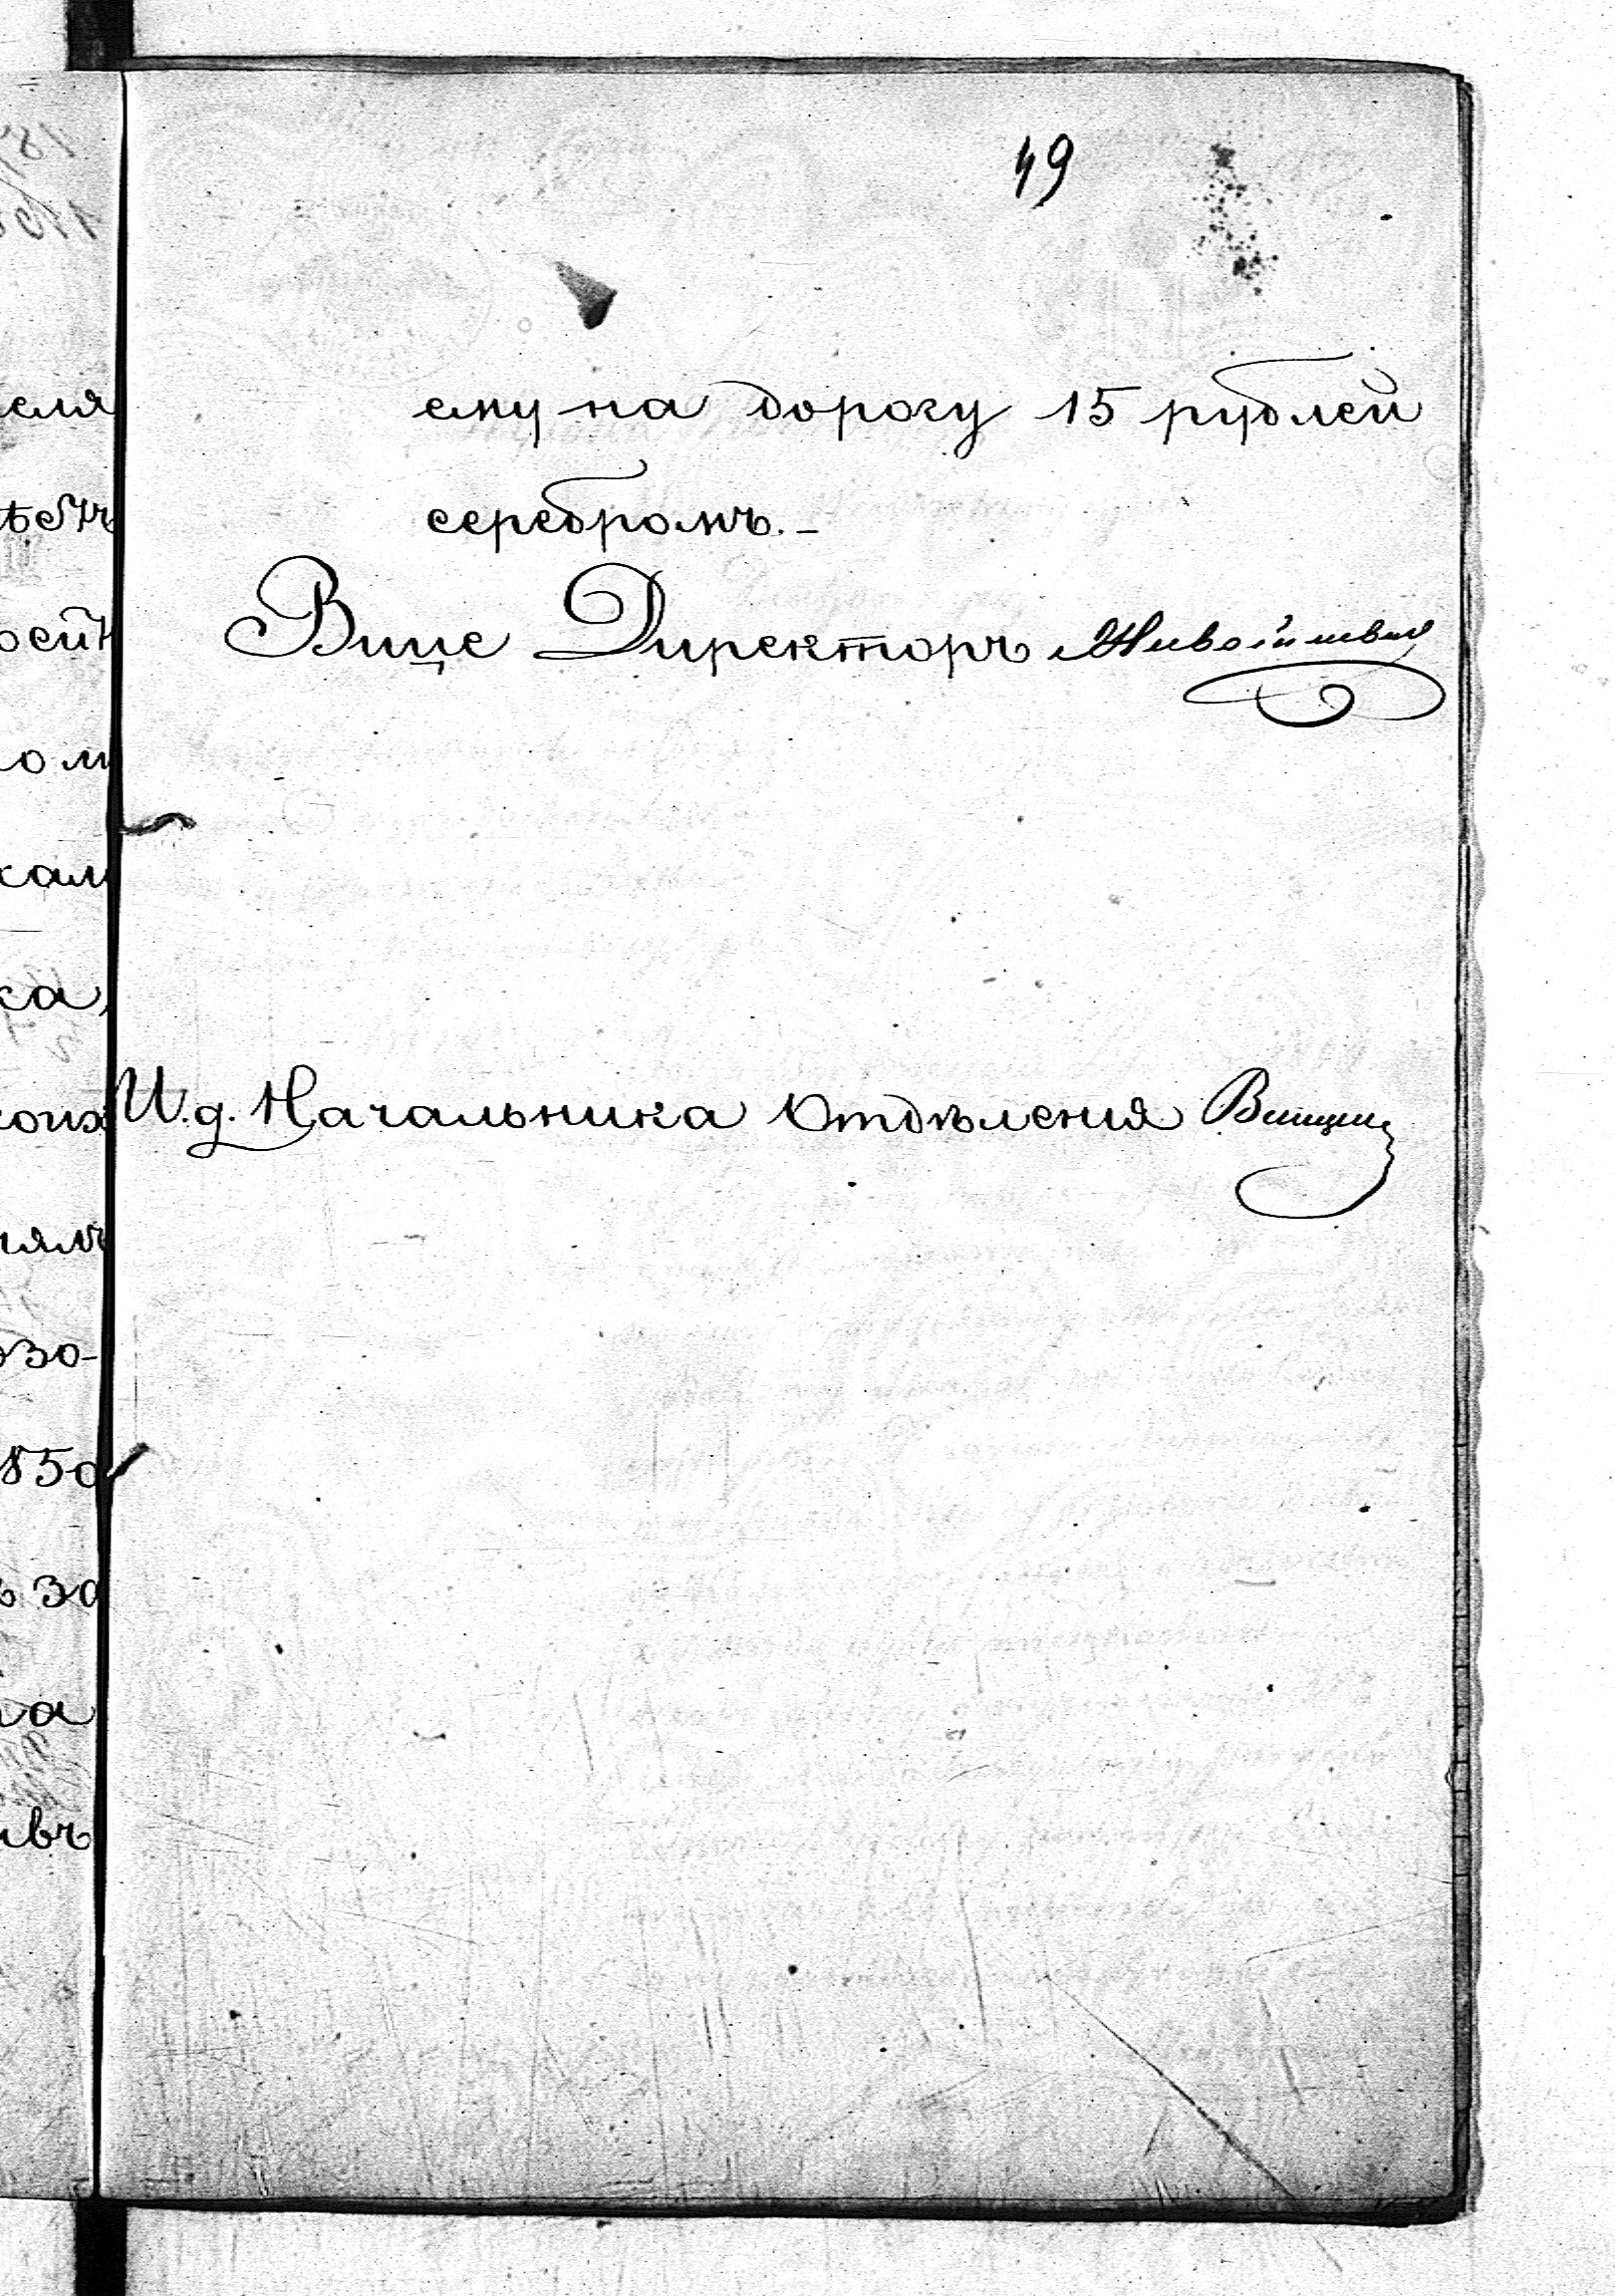 49
ему на дорогу 15 рублей
серебромъ.-
Вице Директоръ
И.д. Начальника Отдѣленія